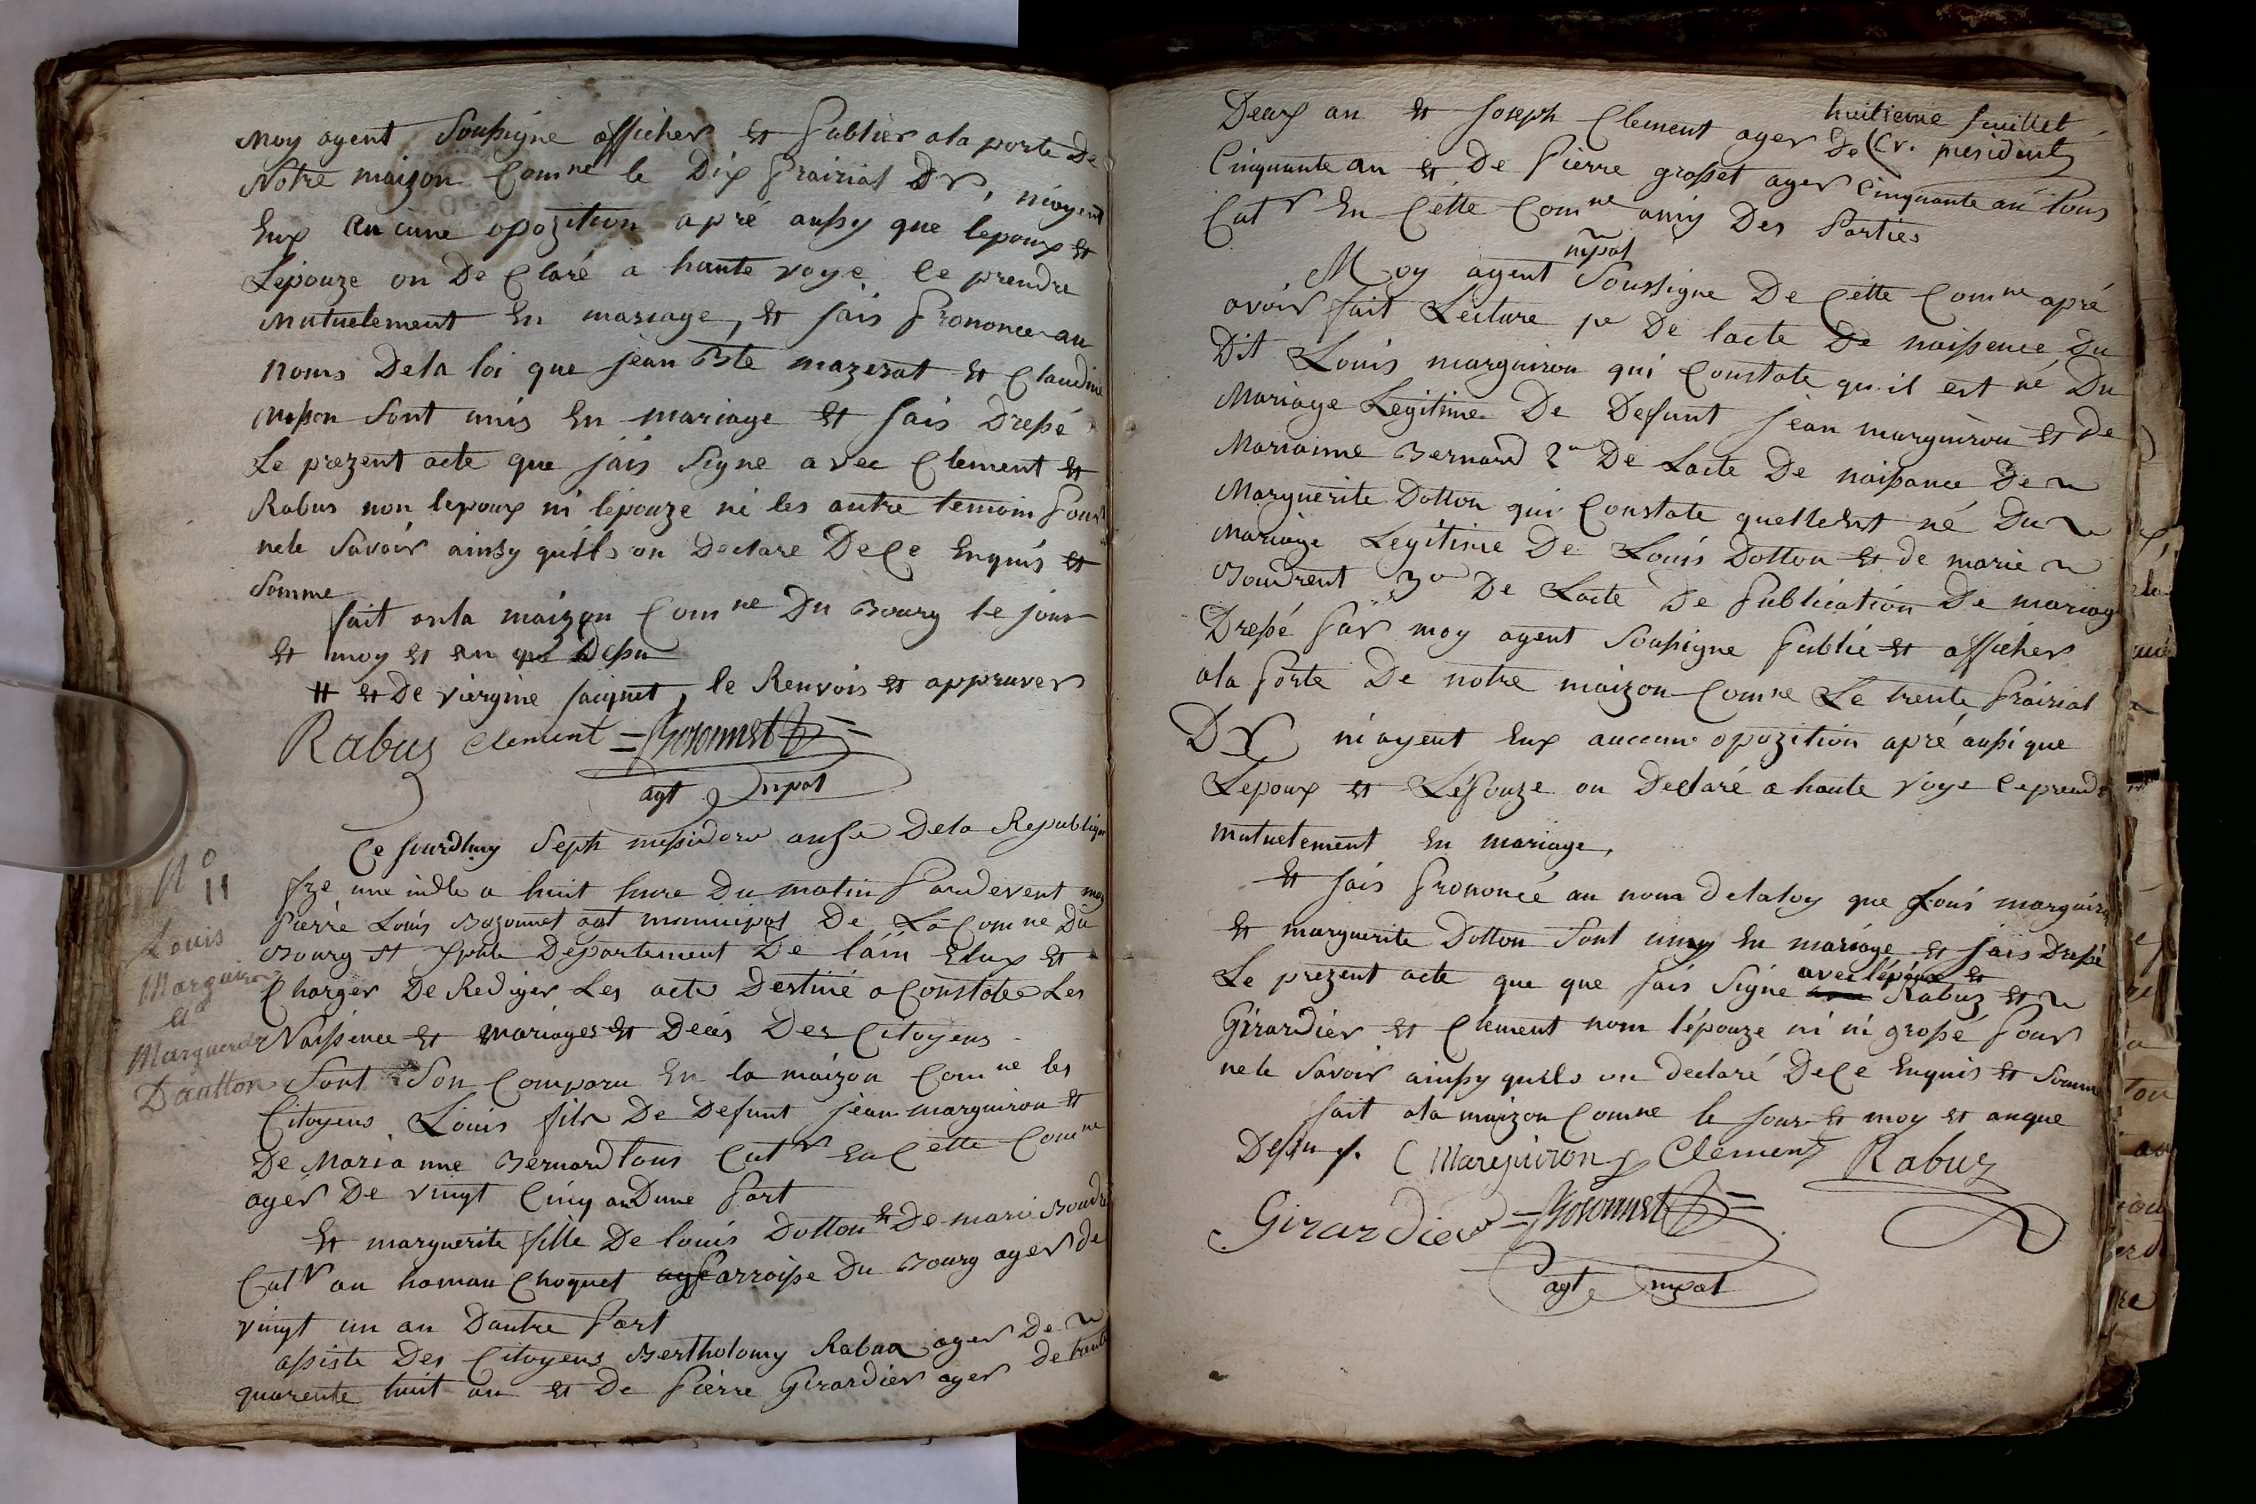 Moy agent Soussigne afficher et Publier a la porte De
Notre maizon Comne le Dix Prairial Dr, niayent
Eux aucune opozition apré aussy que lepoux et
Lepouze on De Claré a haute voye Ce prendre
Mutuelement En mariage, et jais Prononce au
noms Dela loi que jean Bte mazerat et Claudine
Masson Sont unis En mariage et jais Dressé
Le prezent acte que jais Signe avec Clement et
Rabus non lepoux ni lepouze ni les autre temoin Pour
nele Savoir ainsy quils on Declare De Ce Enquis et
Somme
fait a la maizon Comne Du Bourg le jour
et moy et an que Desu
# et De viergine jaiquet, le Renvois et appruver
Rabuz Clement Bozonnet
agt mpal
Ce jourdhuy Sept messidore anse Dela Republique
fze une indle a huit hure Du matin Pardevent moy
Pierre Louis Bozonnet agt municipal De La Comne Du
Bourg St Xphle Departement De lain Elux et
Charger De Rediger Les acte Destiné a Constate Les
Naissence et mariages et Decés Des Citoyens
Sont Son Comparu En la maizon Comne les
Citoyens Louis fils De Defunt jean marguiron et
De Maria nne Bernard tous Cutr En Cette Comne
ager De vingt Cinq an Dune Part
Et marguerite fille De louis Dotton et De marie Boudre
Cutr au hamau Choquet Parroisse Du Bourg ager de
vingt un an Dautre Part
assiste Des Citoyens Bertholomy Rabua ager De
quarente huit an et De Pierre Girardier ager de trente
No
11
Louis
Marguiron
et
Marguerite
Dautton
huitieme feuillet
Cr. president
Deux an et Joseph Clement ager De
Cinquante an et De Pierre grosset ager Cinquante an tous
Cutr En Cette Comne amis Des Parties
mpal
Moy agent Soussigne De Cette Comne apré
avoir fait Lecture 1e De lacte De naissence Du
Dit Louis marguiron qui Constate qu il est né Du
Mariage Legitime De Defunt jean marguiron et De
Marianne Bernard 2e De Lacte De naissance De
Marguerite Dotton qui Constate quelle Est né Du
Mariage Legitime De Louis Dotton et de marie
Boudrent 3e De Lacte De Publication De mariag
Dressé Par moy agent Soussigne Publié et afficher
ala Porte De notre maizon Comne Le trente Prairial
Dr ni ayent Eux aucune opozition apré aussi que
Lepoux et Lépouze on Declaré a haute voye Ce prendr
mutuelement En mariage,
Et jais Prononcé au nom Delaloy que Louis marguiro
et marguerite Dotton Sont uny En mariage et jais Dressé
Le prezent acte que que jais Signe avec lépoux et Rabuz et
Girardier et Clement nom l'épouze ni ni grossé Pour
nele Savoir ainssy quils on declaré De Ce Enquis et Somme
fait ala maizon Comne le jour et moy et anque
Desu Marguiron Clement Rabuz
Girardier Bozonnet
agt mpal